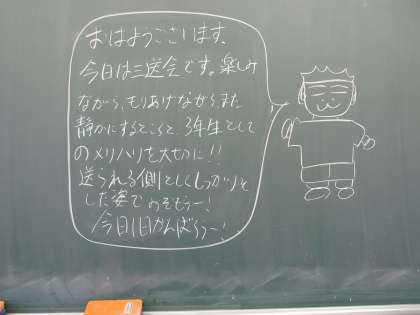 おはようございます。
今日は三送会です。楽しみ
ながら、もりあげながら、また
静かにするところと、3年生として
のメリハリを大切に!!
送られる側としてしっかりと
した姿でのぞもうー!
今日1日がんばろうー!